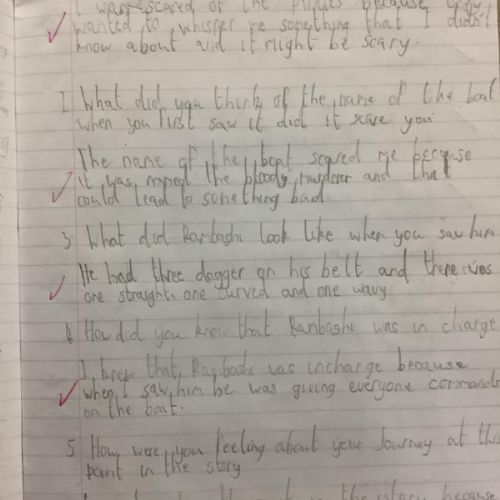 I was scared of the pirates because they
wanted to whisper me something that I didn't
know about and it might be scary.
What did you think of the name of the boat
when you first saw it did it scare you
The name of the boat scared me because
it was named the bloody murderer and that
could lead to something bad.
3 What did Rambashi look like when you saw him
He had three dagger on his belt and there was
one straight, one curved and one wavy
4 How did you know that Rambashi was in charge
I knew that Rambashi was incharge because
when I saw him he was giving everyone commands
on the boat.
5 How were you feeling about your Journey at this
point in the story
the story because